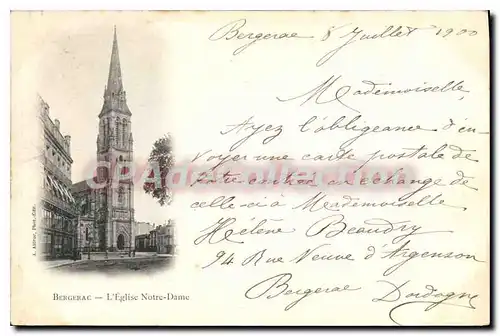 Bergerac 8 Juillet 1900
Mademoiselle,
Ayez l'obligeance d'en-
voyer une carte postale de
votre en échange de
celle-ci à Mademoiselle
Hélène Beaudry
94 Rue Neuve d'Argenson
Bergerac Dordogne
BERGERAC — L'Église Notre-Dame